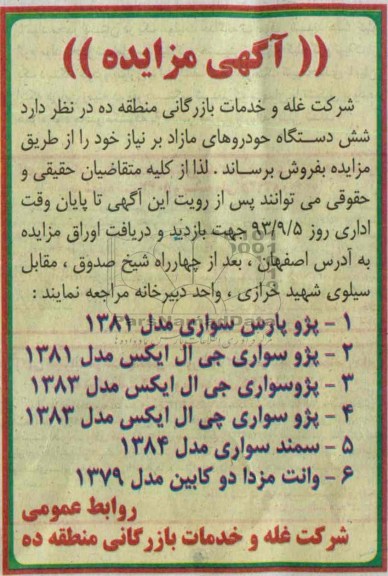 (( آگهی مزایده ))
شرکت غله و خدمات بازرگانی منطقه ده در نظر دارد
شش دستگاه خودروهای مازاد بر نیاز خود را از طریق
مزایده بفروش برساند . لذا از کلیه متقاضیان حقیقی و
حقوقی می توانند پس از رویت این آگهی تا پایان وقت
اداری روز ۹۳/۹/۵ جهت بازدید و دریافت اوراق مزایده
به آدرس اصفهان ، بعد از چهارراه شیخ صدوق ، مقابل
سیلوی شهید خرازی ، واحد دبیرخانه مراجعه نمایند :
۱ - پژو پارس سواری مدل ۱۳۸۱
۲ - پژو سواری جی ال ایکس مدل ۱۳۸۱
۳ - پژوسواری جی ال ایکس مدل ۱۳۸۳
۴ - پژو سواری چی ال ایکس مدل ۱۳۸۳
۵ - سمند سواری مدل ۱۳۸۴
۶ - وانت مزدا دو کابین مدل ۱۳۷۹
روابط عمومی
شرکت غله و خدمات بازرگانی منطقه ده